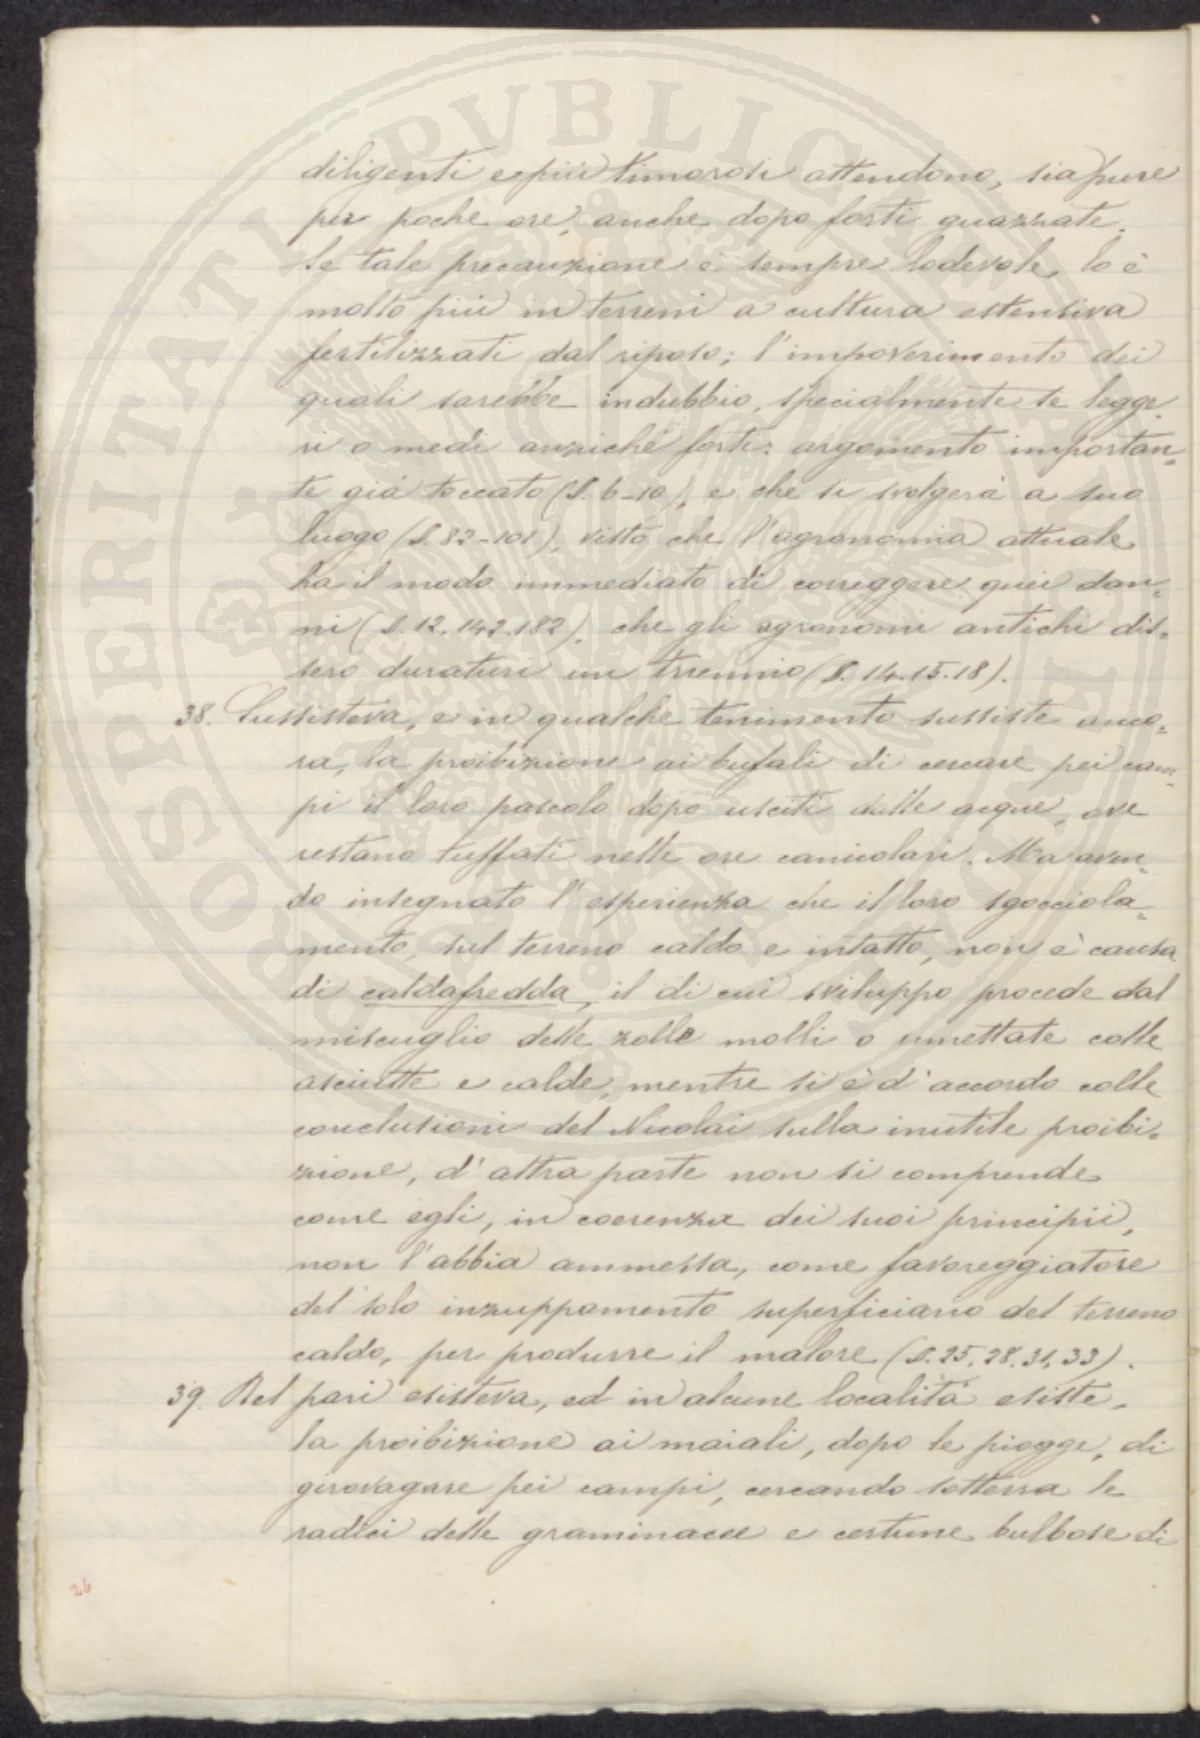 diligenti e più timorosi attendono, sia pure
per poche ore, anche dopo forti guazzate.
Se tale precauzione è sempre lodevole, lo è
molto più in terreni a cultura estensiva
fertilizzati dal riposo; l'impoverimento dei
quali sarebbe indubbio, specialmente se legge-
ri o medi anziché forti: argomento importan=
te già toccato (§. 6-10), e che si svolgerà a suo
luogo (§. 82-101), visto che l'agronomia attuale
ha il modo immediato di correggere quei dan=
ni (§. 12. 142. 182), che gli agronomi antichi dis=
sero duraturi un triennio (§. 14. 15. 18).
38. Sussisteva, e in qualche tenimento sussiste anco=
ra, la proibizione ai bufali di cercare pei cam=
pi il loro pascolo dopo usciti dalle acque, ove
restano tuffati nelle ore canicolari. Ma aven=
do insegnato l'esperienza che il loro sgocciola=
mento, sul terreno caldo e intatto, non è causa
di caldafredda, il di cui sviluppo procede dal
miscuglio delle zolle molli o umettate colle
asciutte e calde, mentre si è d'accordo colle
conclusioni del Nicolai sulla inutile proibi=
zione, d'altra parte non si comprende
come egli, in coerenza dei suoi principii,
non l'abbia ammessa, come favoreggiatore
del solo inzuppamento superficiario del terreno
caldo, per produrre il malore (§. 25, 28. 31, 33).
39. Del pari esisteva, ed in alcune località esiste,
la proibizione ai maiali, dopo le piogge, di
girovagare pei campi, cercando sotterra le
radici delle graminacee e certune bulbose di
26
SOSPERITATI PUBLICAE